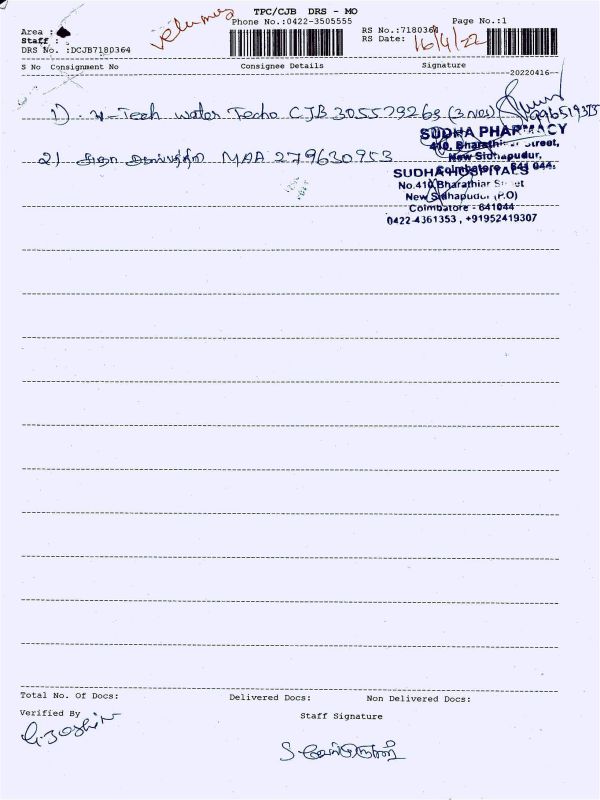 TPC/CJB DRS - MO
velumus
Phone No.:0422-3505555
Page No.:1
Area :
Staff :
DRS No. :DCJB7180364
RS No.:7180364
RS Date: 16/4/22
S No Consignment No Consignee Details Signature
20220416
1) . W-Tech water Techo CJB 305579269 (3 Nos)
SUDHA PHARMACY
410, Bharathiar Street,
New Sidhapudur,
Coimbatore - 641 044.
2) சுதா MAA 279630953
SUDHA HOSPITALS
No.410 Bharathiar Street
New Sidhapudur (P.O)
Coimbatore - 641044
0422-4361353 , +91952419307
Total No. Of Docs: Delivered Docs: Non Delivered Docs:
Verified By
Staff Signature